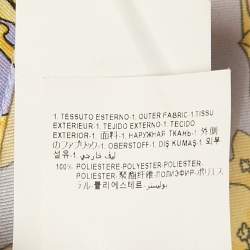 1. TESSUTO ESTERNO-1. OUTER FABRIC-1.TISSU
EXTERIEUR-1. TEJIDO EXTERNO-1. TECIDO
EXTERIOR-1. 面料-1. НАРУЖНАЯ ТКАНЬ-1. 外側
のファブリック-1. OBERSTOFF-1. DIŞ KUMAŞ-1. 외부
섬유-1. ليف خارجي
100% POLIESTERE-POLYESTER-POLIESTER-
POLIESTER, 聚酯纤维-ПОЛИЭФИР-ポリエス
テル-폴리에스테르-بوليستر